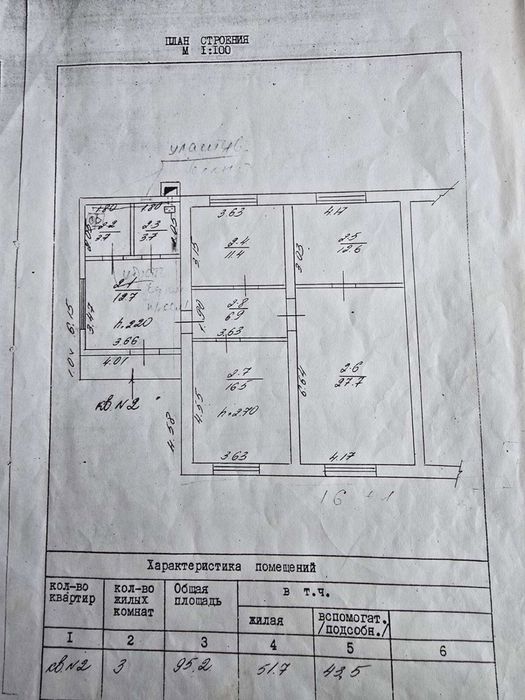 ПЛАН СТРОЕНИЯ
М I:100
1.80 1.80
3.63
4.17
2.2
3.7
2.3
3.7
3.15
2.4
11.4
3.03
2.5
12.6
2.1
12.7
3.47
6.15
h.220
3.66
4.01
1.90
2.8
6.9
3.63
2.7
16.5
4.55
h.270
3.63
2.6
27.7
6.64
4.17
1.04
кв N2
4.58
Характеристика помещений
кол-во квартир
кол-во жилых комнат
Общая площадь
в т.ч.
жилая
вспомогат. /подсобн./
I 2 3 4 5 6
кв N2 3 95.2 51.7 43,5